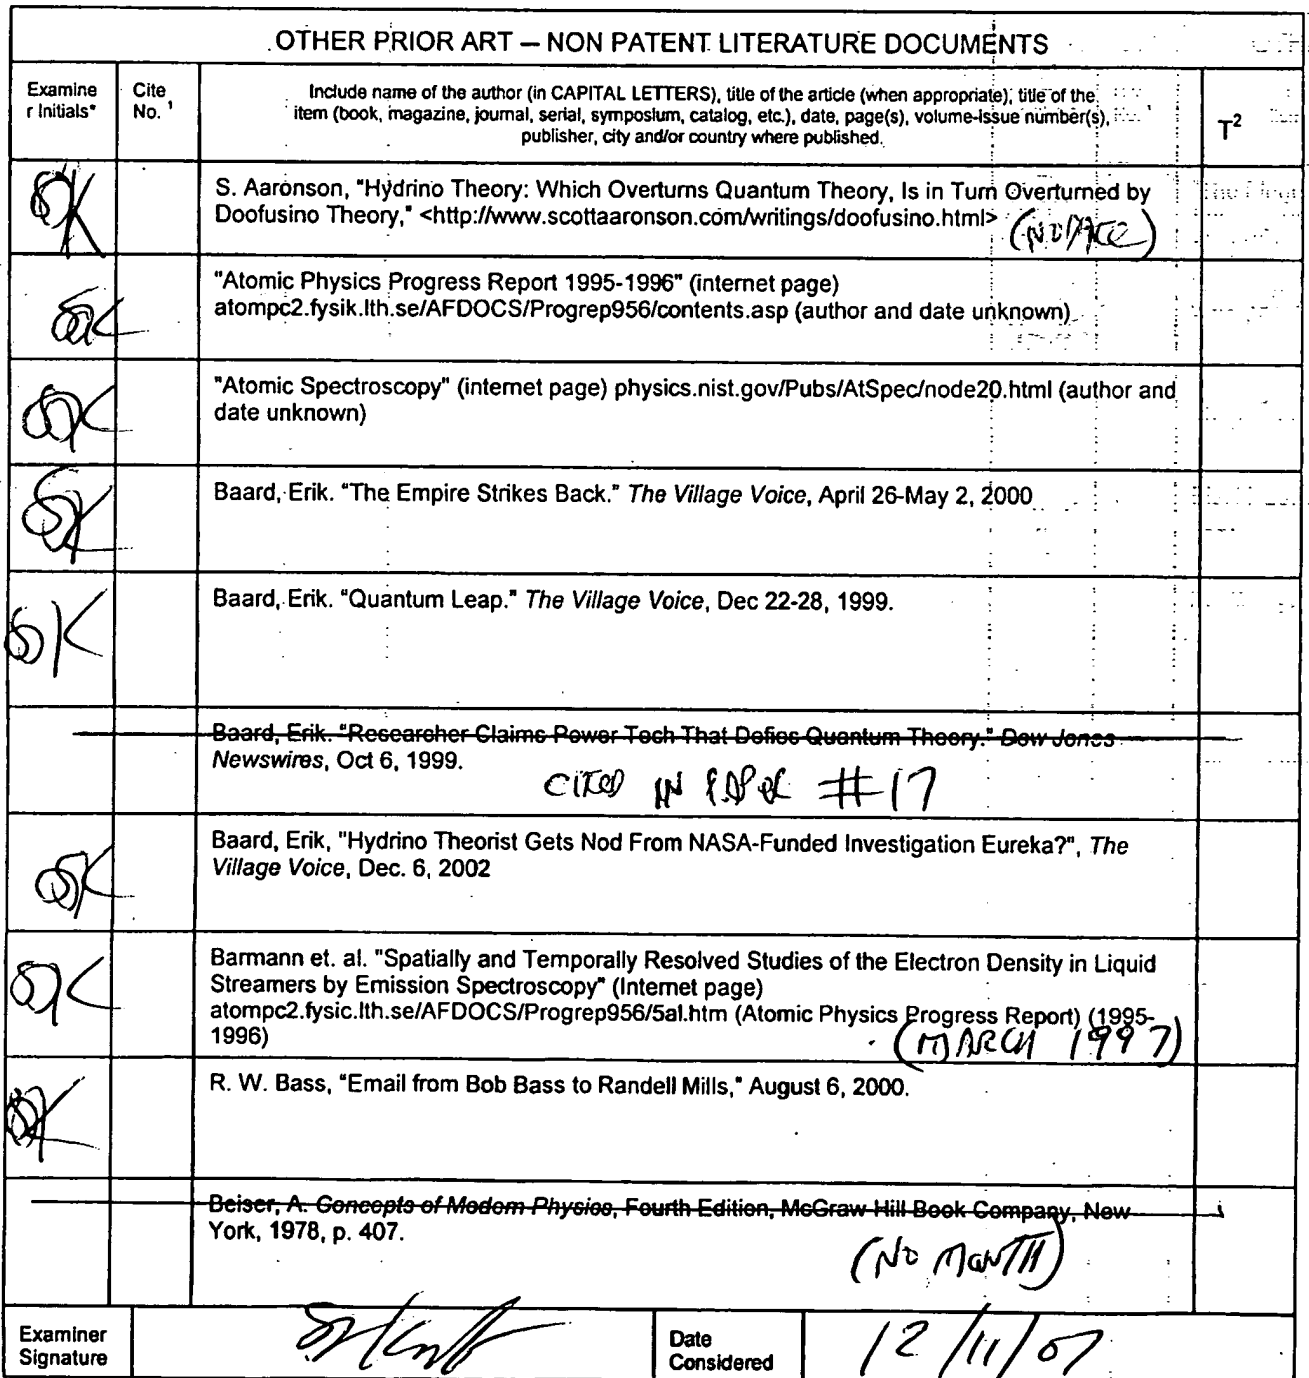 OTHER PRIOR ART – NON PATENT LITERATURE DOCUMENTS
Examine
r Initials*
Cite
No. ¹
Include name of the author (in CAPITAL LETTERS), title of the article (when appropriate), title of the
item (book, magazine, journal, serial, symposium, catalog, etc.), date, page(s), volume-issue number(s),
publisher, city and/or country where published.
T²
SK
S. Aaronson, "Hydrino Theory: Which Overturns Quantum Theory, Is in Turn Overturned by
Doofusino Theory," <http://www.scottaaronson.com/writings/doofusino.html>
(NO DATE)
SK
"Atomic Physics Progress Report 1995-1996" (internet page)
atompc2.fysik.lth.se/AFDOCS/Progrep956/contents.asp (author and date unknown)
SK
"Atomic Spectroscopy" (internet page) physics.nist.gov/Pubs/AtSpec/node20.html (author and
date unknown)
SK
Baard, Erik. "The Empire Strikes Back." The Village Voice, April 26-May 2, 2000
SK
Baard, Erik. "Quantum Leap." The Village Voice, Dec 22-28, 1999.
Baard, Erik. "Researcher Claims Power Tech That Defies Quantum Theory." Dow Jones
Newswires, Oct 6, 1999.
CITED IN PAPER #17
SK
Baard, Erik, "Hydrino Theorist Gets Nod From NASA-Funded Investigation Eureka?", The
Village Voice, Dec. 6, 2002
SK
Barmann et. al. "Spatially and Temporally Resolved Studies of the Electron Density in Liquid
Streamers by Emission Spectroscopy" (Internet page)
atompc2.fysic.lth.se/AFDOCS/Progrep956/5al.htm (Atomic Physics Progress Report) (1995-
1996)
(MARCH 1997)
SK
R. W. Bass, "Email from Bob Bass to Randell Mills," August 6, 2000.
Beiser, A. Concepts of Modern Physics, Fourth Edition, McGraw-Hill Book Company, New
York, 1978, p. 407.
(NO MONTH)
Examiner
Signature
Date
Considered
12/11/07